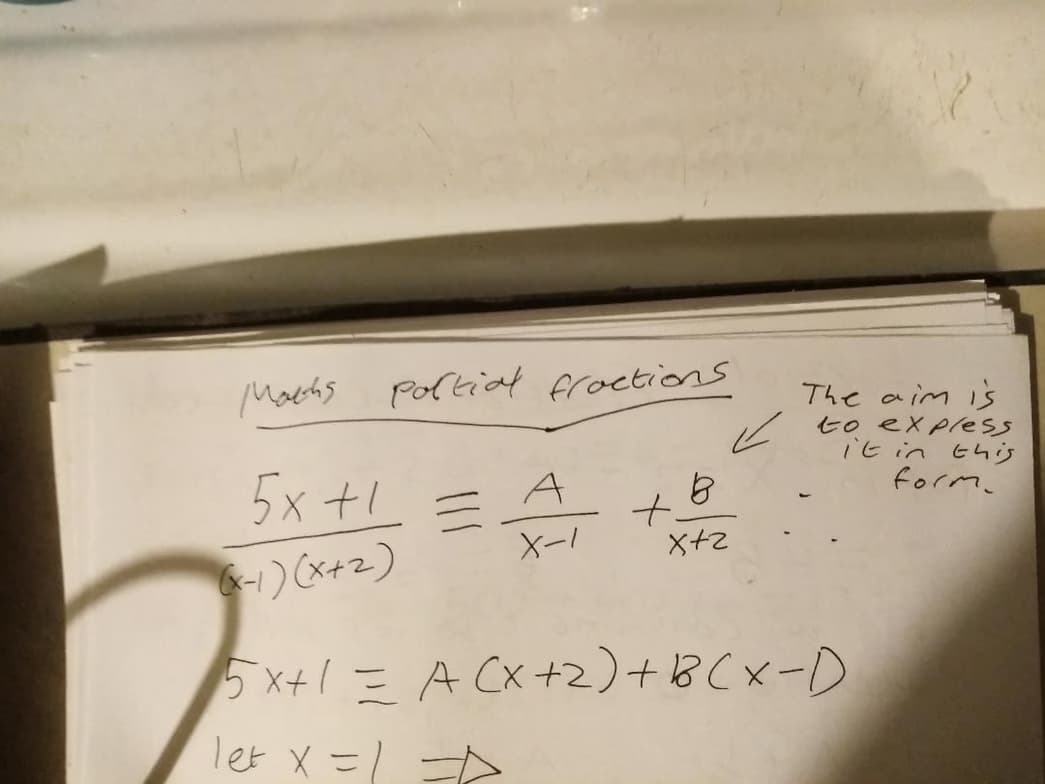 Maths partial fractions
The aim is
to express
it in this
form.
5x+1 / (x-1)(x+2) ≡ A / x-1 + B / x+2 ∴
5x+1 ≡ A(x+2)+B(x-1)
let x=1 ⇒